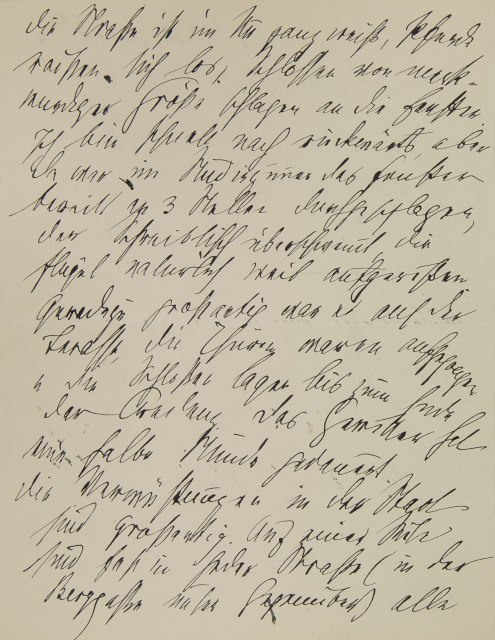 die Straße ist im Nu ganz weiß, Pferde
reißen sich los, Schlossen von merk-
würdiger Größe schlagen an die Fenster.
Ich bin schnell nach rückwärts, aber
da war im Studirzimmer das Fenster
bereits an 3 Stellen durchgeschlagen,
der Schreibtisch überschwemmt die
Flügel natürlich weit aufgerissen
Geradezu großartig war es auf der
Terasse die Thüren waren aufgegangen
u die Schlossen lagen bis zum Ende
der Das Gewitter hat
eine halbe Stunde gedauert
die Verwüstungen in der Stadt
sind großartig. Auf einer Seite
sind fast in jeder Straße (in der
Berggasse unser Gegenüber) alle